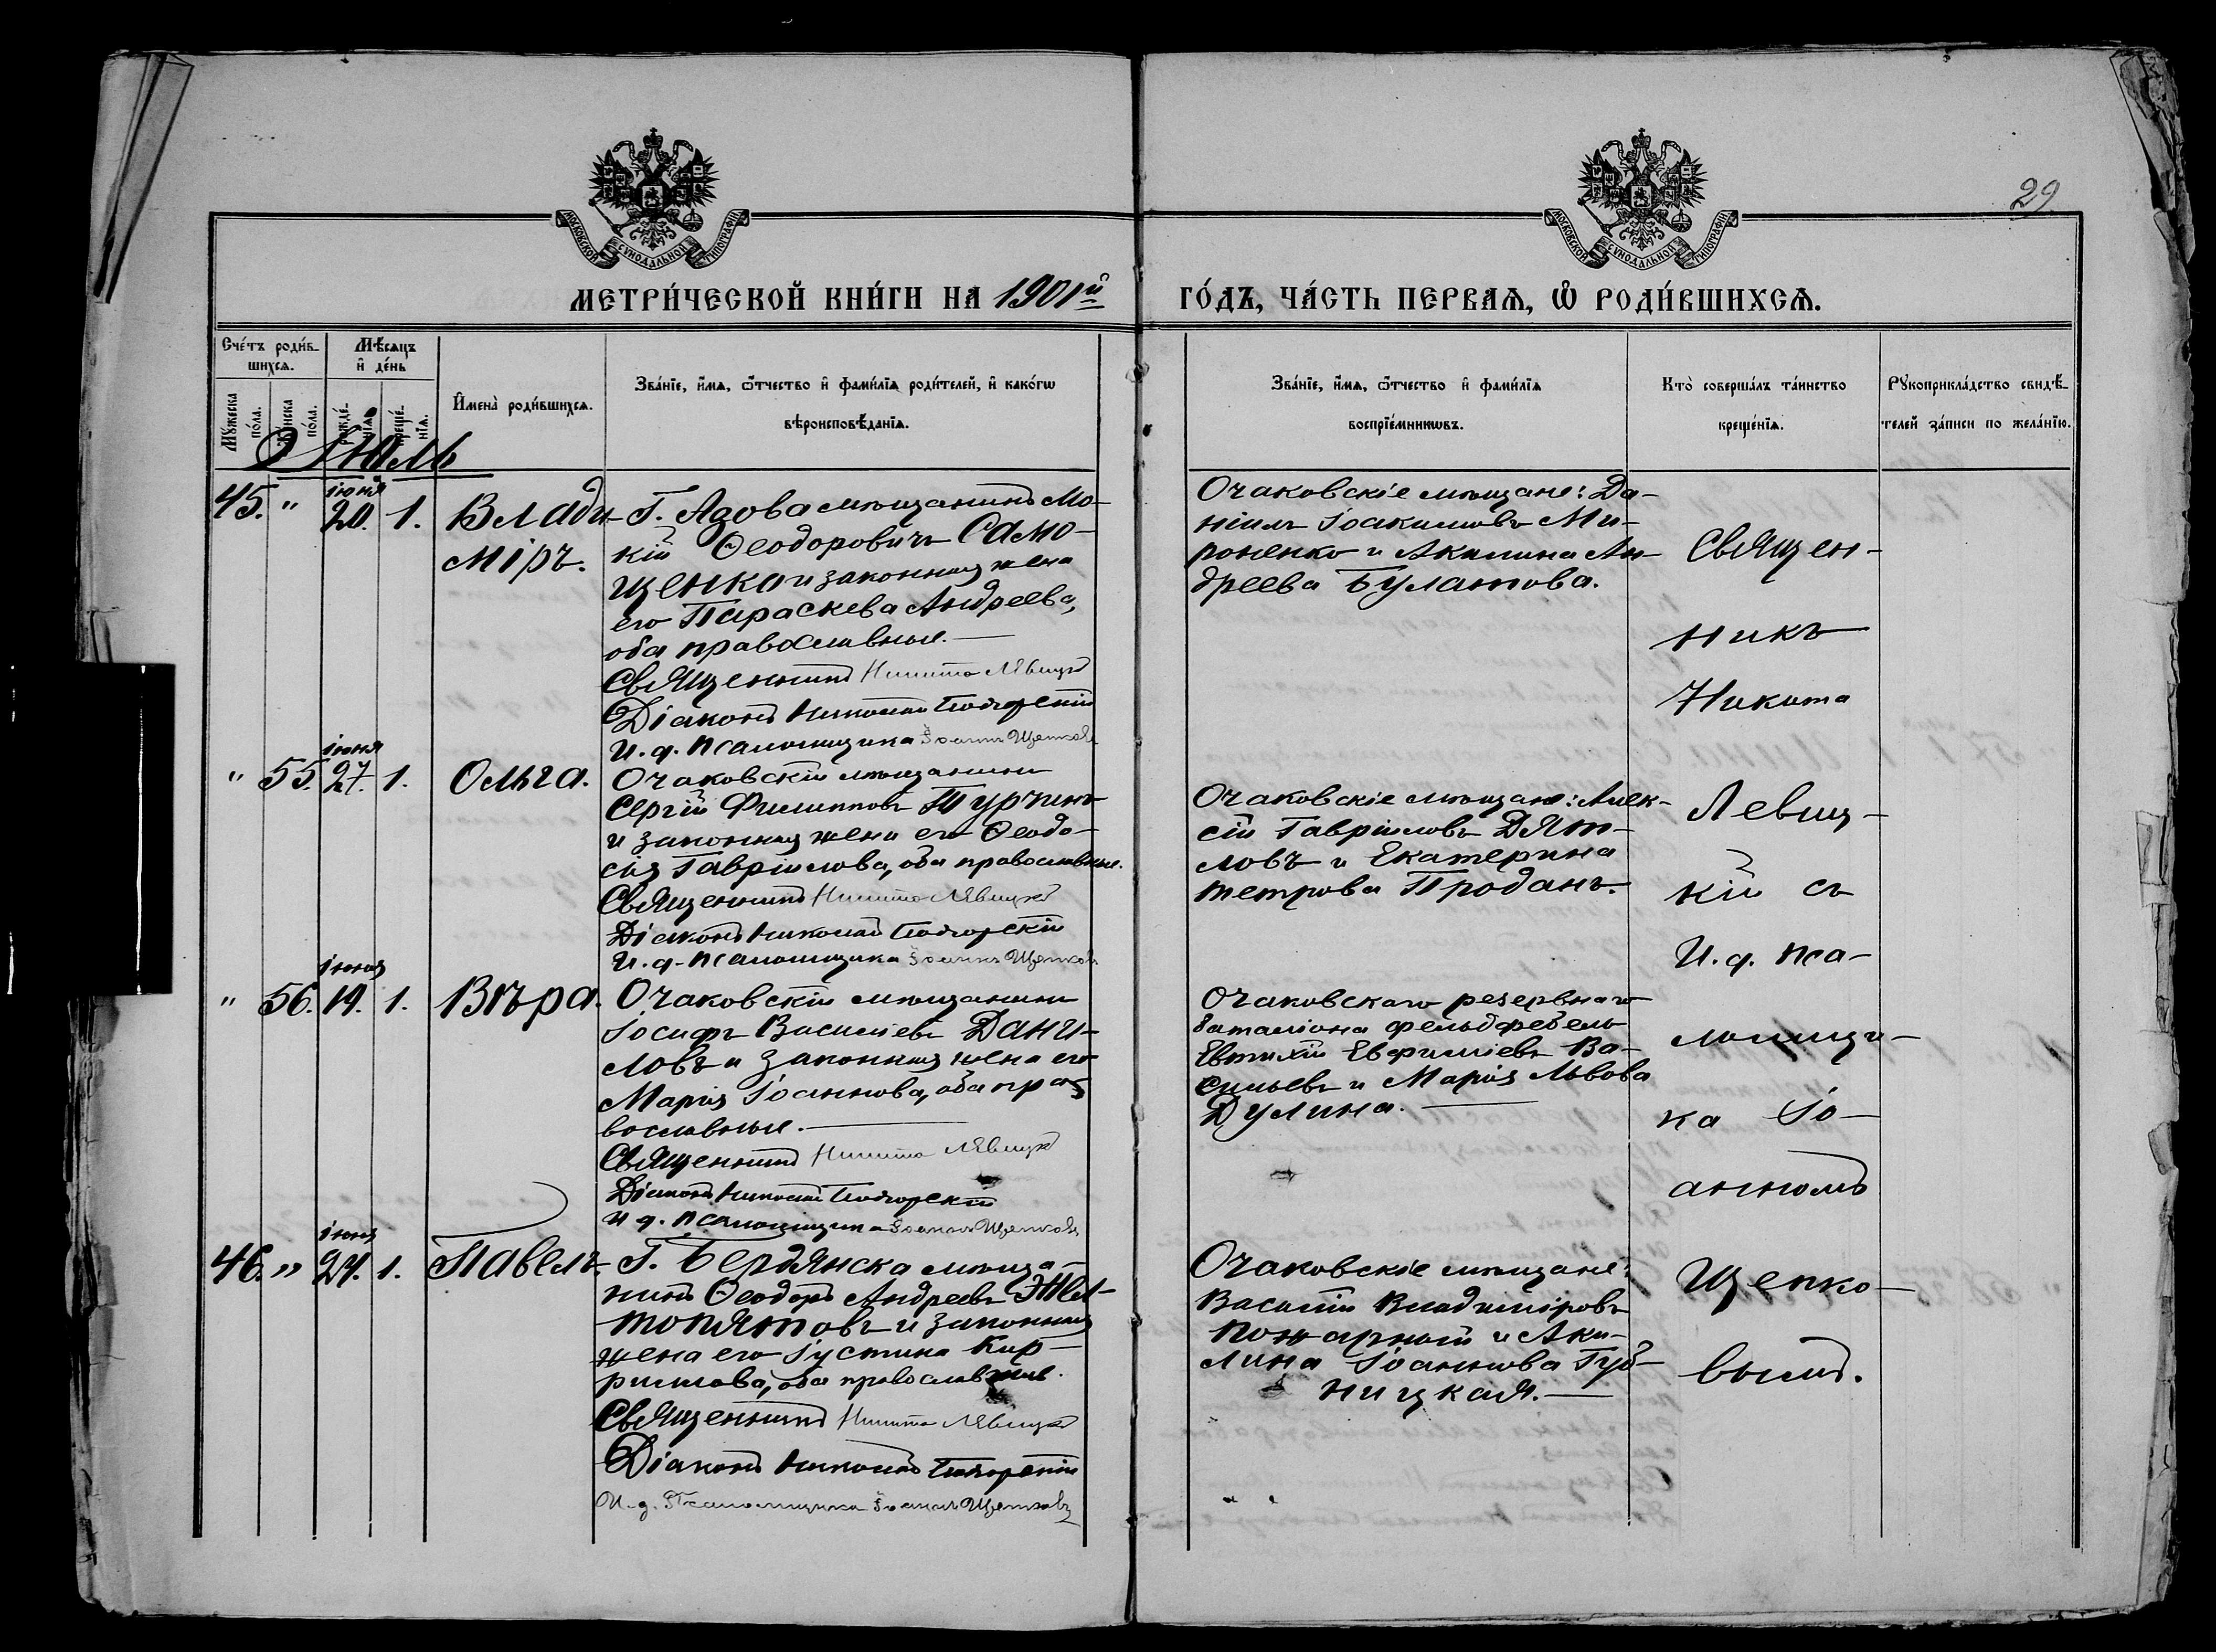 29
МОСКОВСКОЙ СУНОДАЛЬНОЙ ТИПОГРАФІИ
МОСКОВСКОЙ СУНОДАЛЬНОЙ ТИПОГРАФІИ
МЕТРИ́ЧЕСКОЙ КНИ́ГИ НА 1901й ГО́ДЪ, ЧА́СТЬ ПЕРВАѦ, Ѡ҆ РОДИ́ВШИХСѦ.
Сче́тъ роди́в-
шихсѧ.
Мѣ́сѧцъ
и҆ де́нь
Мꙋ́жеска
по́ла.
Же́нска
по́ла.
рожде́-
нїѧ.
креще́-
нїѧ.
И҆мена̀ роди́вшихсѧ.
Зва́нїе, и҆́мѧ, ѻ҆́тчество и҆ фами́лїѧ роди́телей, и҆ како́гѡ
вѣроисповѣ́данїѧ.
Зва́нїе, и҆́мѧ, ѻ҆́тчество и҆ фами́лїѧ
воспрїе́мникѡвъ.
Кто̀ соверша́лъ та́инство
креще́нїѧ.
Рꙋкоприкла́дство свидѣ́-
телей за́писи по жела́нїю.
Іюль
45. " іюня 20. 1. Влади-
міръ.
Г. Азова мѣщанинъ Мо-
кій Ѳеодоровичъ Само-
щенко и законная жена
его Параскева Андреева,
оба православные.
Священникъ Никита Левицкій
Діаконъ Николай Подгорскій
И. д. псаломщика Іоаннъ Щепковъ
Очаковскіе мѣщане: Да-
ніилъ Іоакимовъ Ми-
роненко и Акилина Ан-
дреева Булатова.
" 55. іюня 27. 1. Ольга.
Очаковскій мѣщанинъ
Сергій Филипповъ Турчинъ
и законная жена его Ѳеодо-
сія Гавріилова, оба православные.
Священникъ Никита Левицкій
Діаконъ Николай Подгорскій
И. д. псаломщика Іоаннъ Щепковъ
Очаковскіе мѣщане: Алек-
сій Гавріиловъ Дят-
ловъ и Екатерина
Петрова Проданъ.
" 56. іюня 19. 1. Вѣра.
Очаковскій мѣщанинъ
Іосифъ Василіевъ Дани-
ловъ и законная жена его
Марія Іоаннова, оба пра-
вославные.
Священникъ Никита Левицкій
Діаконъ Николай Подгорскій
И. д. псаломщика Іоаннъ Щепковъ
Очаковскаго резервнаго
баталіона фельдфебель
Евтихій Евфиміевъ Ва-
сильевъ и Марія Львова
Дулина.
46. " іюня 24. 1. Павелъ.
Г. Бердянска мѣща-
нинъ Ѳеодоръ Андреевъ Жел-
топятовъ и законная
жена его Іустина Кир-
риллова, оба православные.
Священникъ Никита Левицкій
Діаконъ Николай Подгорскій
И. д. Псаломщика Іоаннъ Щепковъ
Очаковскіе мѣщане:
Василій Владиміровъ
Пожарный и Аки-
лина Іоаннова Гуд-
ницкая.
Священ-
никъ
Никита
Левиц-
кій съ
И. д. пса-
ломщи-
ка Іо-
анномъ
Щепко-
вымъ.